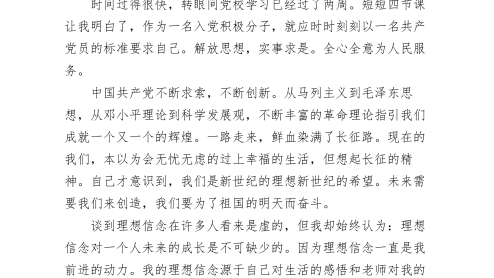 时间过得很快，转眼间党校学习已经过了两周。短短四节课
让我明白了，作为一名入党积极分子，就应时时刻刻以一名共产
党员的标准要求自己。解放思想，实事求是。全心全意为人民服
务。
中国共产党不断求索，不断创新。从马列主义到毛泽东思
想，从邓小平理论到科学发展观，不断丰富的革命理论指引我们
成就一个又一个的辉煌。一路走来，鲜血染满了长征路。现在的
我们，本以为会无忧无虑的过上幸福的生活，但想起长征的精
神。自己才意识到，我们是新世纪的理想新世纪的希望。未来需
要我们来创造，我们要为了祖国的明天而奋斗。
谈到理想信念在许多人看来是虚的，但我却始终认为：理想
信念对一个人未来的成长是不可缺少的。因为理想信念一直是我
前进的动力。我的理想信念源于自己对生活的感悟和老师对我的